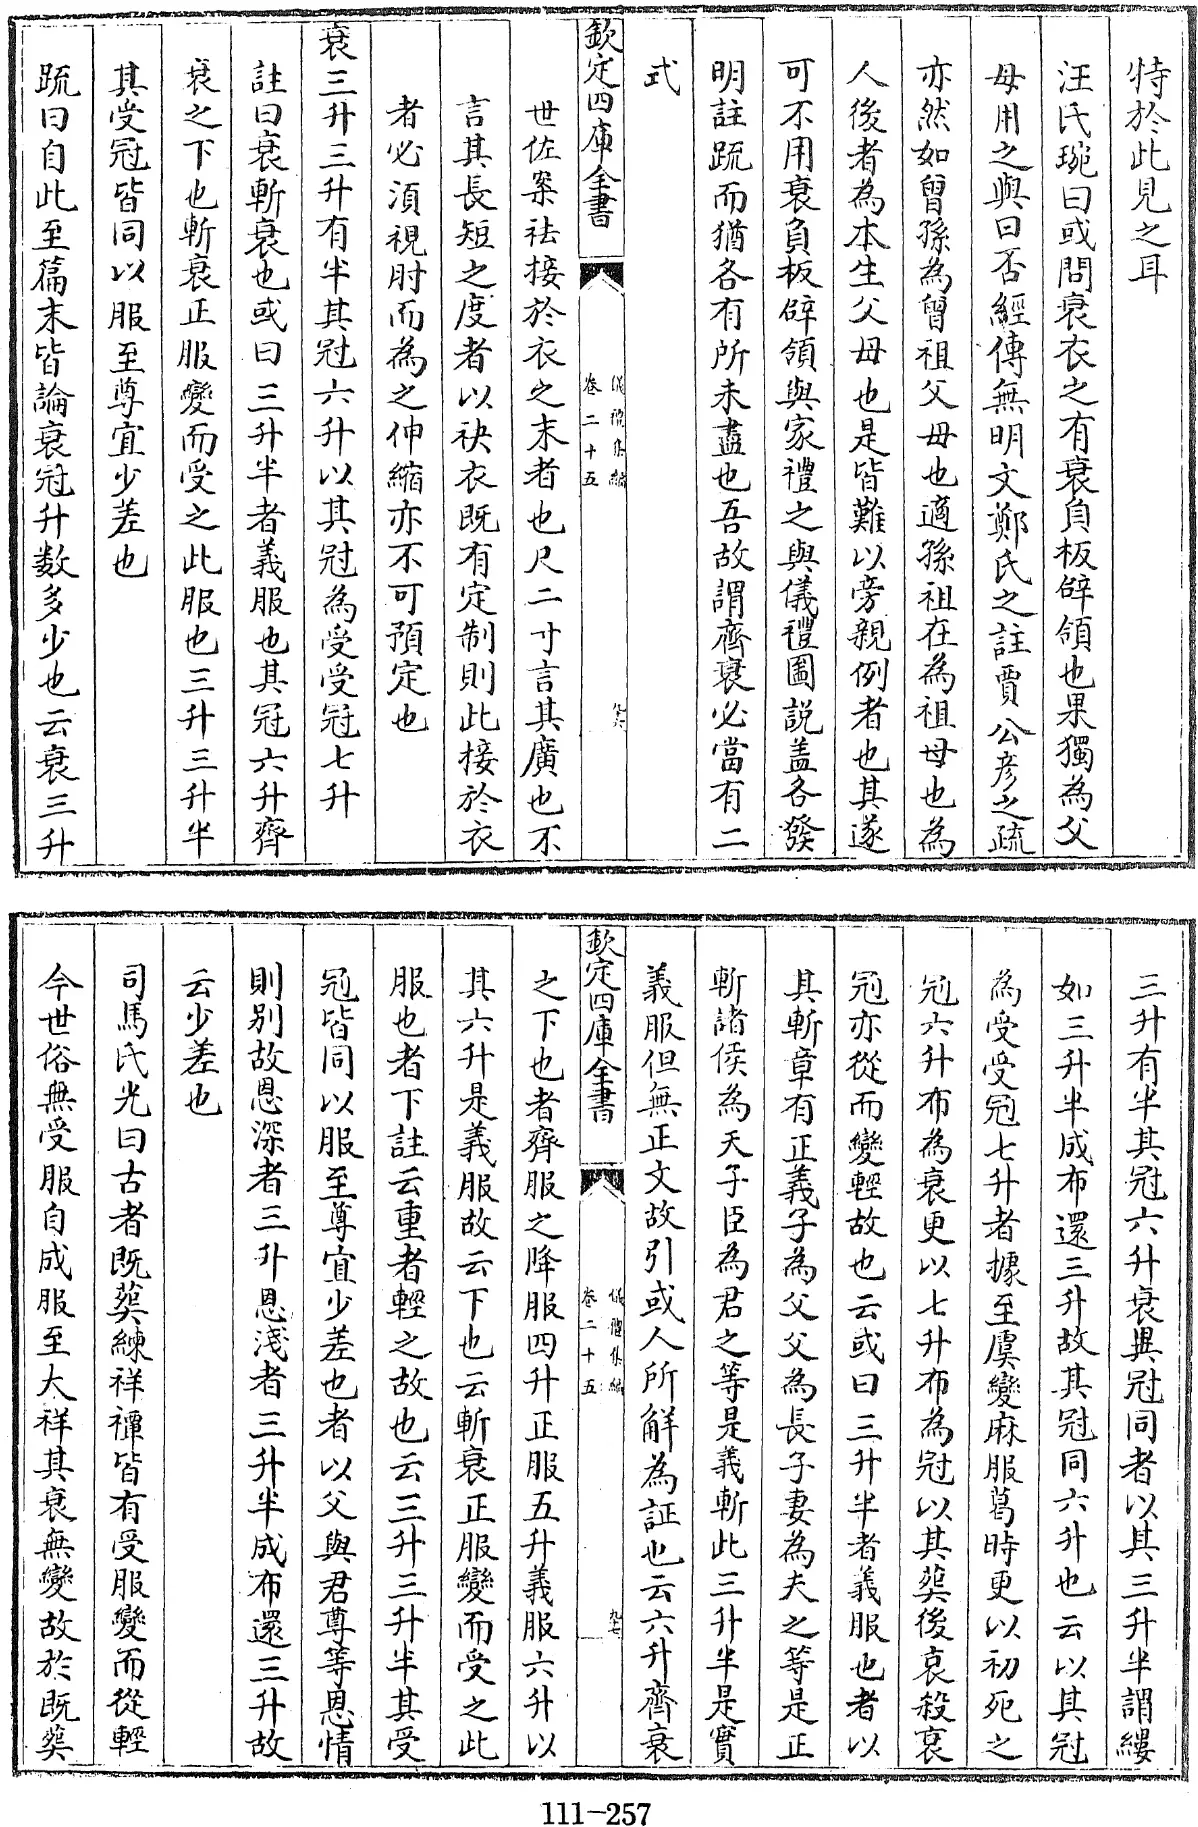 特於此見之耳
汪氏琬曰或問衰衣之有衰負板辟領也果獨為父
母用之與曰否經傳無明文鄭氏之註賈公彦之疏
亦然如曾孫為曾祖父母也適孫祖在為祖母也為
人後者為本生父母也是皆難以旁親例者也其遂
可不用衰負板辟領與家禮之與儀禮圖説盖各發
明註疏而猶各有所未盡也吾故謂齊衰必當有二
式
欽定四庫全書
儀禮集編
卷二十五
九六
世佐案袪接於衣之末者也尺二寸言其廣也不
言其長短之度者以袂衣既有定制則此接於衣
者必須視肘而為之伸縮亦不可預定也
衰三升三升有半其冠六升以其冠為受受冠七升
註曰衰斬衰也或曰三升半者義服也其冠六升齊
衰之下也斬衰正服變而受之此服也三升三升半
其受冠皆同以服至尊宜少差也
疏曰自此至篇末皆論衰冠升數多少也云衰三升
三升有半其冠六升衰異冠同者以其三升半謂縷
如三升半成布還三升故其冠同六升也云以其冠
為受受冠七升者據至虞變麻服葛時更以初死之
冠六升布為衰更以七升布為冠以其葬後哀殺衰
冠亦從而變輕故也云或曰三升半者義服也者以
其斬章有正義子為父父為長子妻為夫之等是正
斬諸侯為天子臣為君之等是義斬此三升半是實
義服但無正文故引或人所解為証也云六升齊衰
欽定四庫全書
儀禮集編
卷二十五
九七
之下也者齊服之降服四升正服五升義服六升以
其六升是義服故云下也云斬衰正服變而受之此
服也者下註云重者輕之故也云三升三升半其受
冠皆同以服至尊宜少差也者以父與君尊等恩情
則别故恩深者三升恩淺者三升半成布還三升故
云少差也
司馬氏光曰古者既葬練祥禫皆有受服變而從輕
今世俗無受服自成服至大祥其衰無變故於既葬
111-257